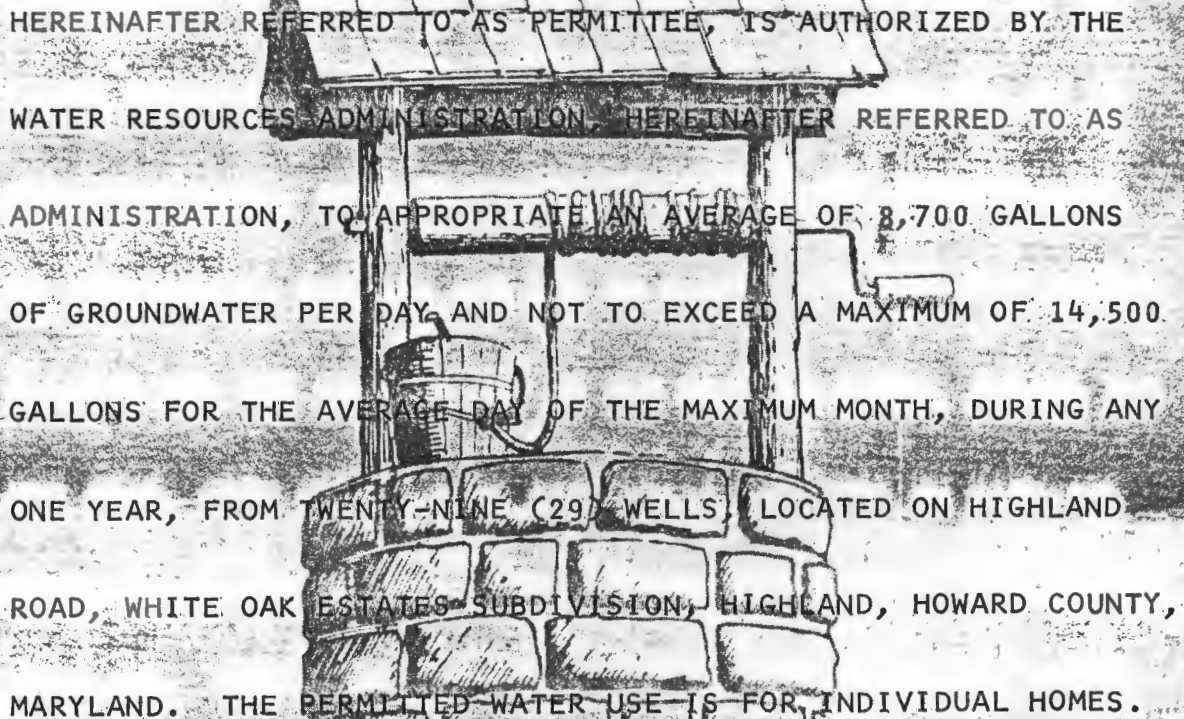 HEREINAFTER REFERRED TO AS PERMITTEE, IS AUTHORIZED BY THE
WATER RESOURCES ADMINISTRATION, HEREINAFTER REFERRED TO AS
ADMINISTRATION, TO APPROPRIATE AN AVERAGE OF 8,700 GALLONS
OF GROUNDWATER PER DAY AND NOT TO EXCEED A MAXIMUM OF 14,500
GALLONS FOR THE AVERAGE DAY OF THE MAXIMUM MONTH, DURING ANY
ONE YEAR, FROM TWENTY-NINE (29) WELLS, LOCATED ON HIGHLAND
ROAD, WHITE OAK ESTATES SUBDIVISION, HIGHLAND, HOWARD COUNTY,
MARYLAND. THE PERMITTED WATER USE IS FOR INDIVIDUAL HOMES.